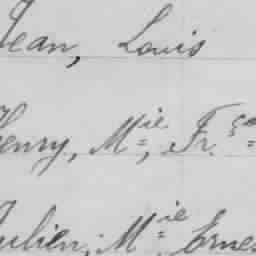 Jean, Louis
Henry, Mie, Fr.ço
Julien, Mie, Ernes